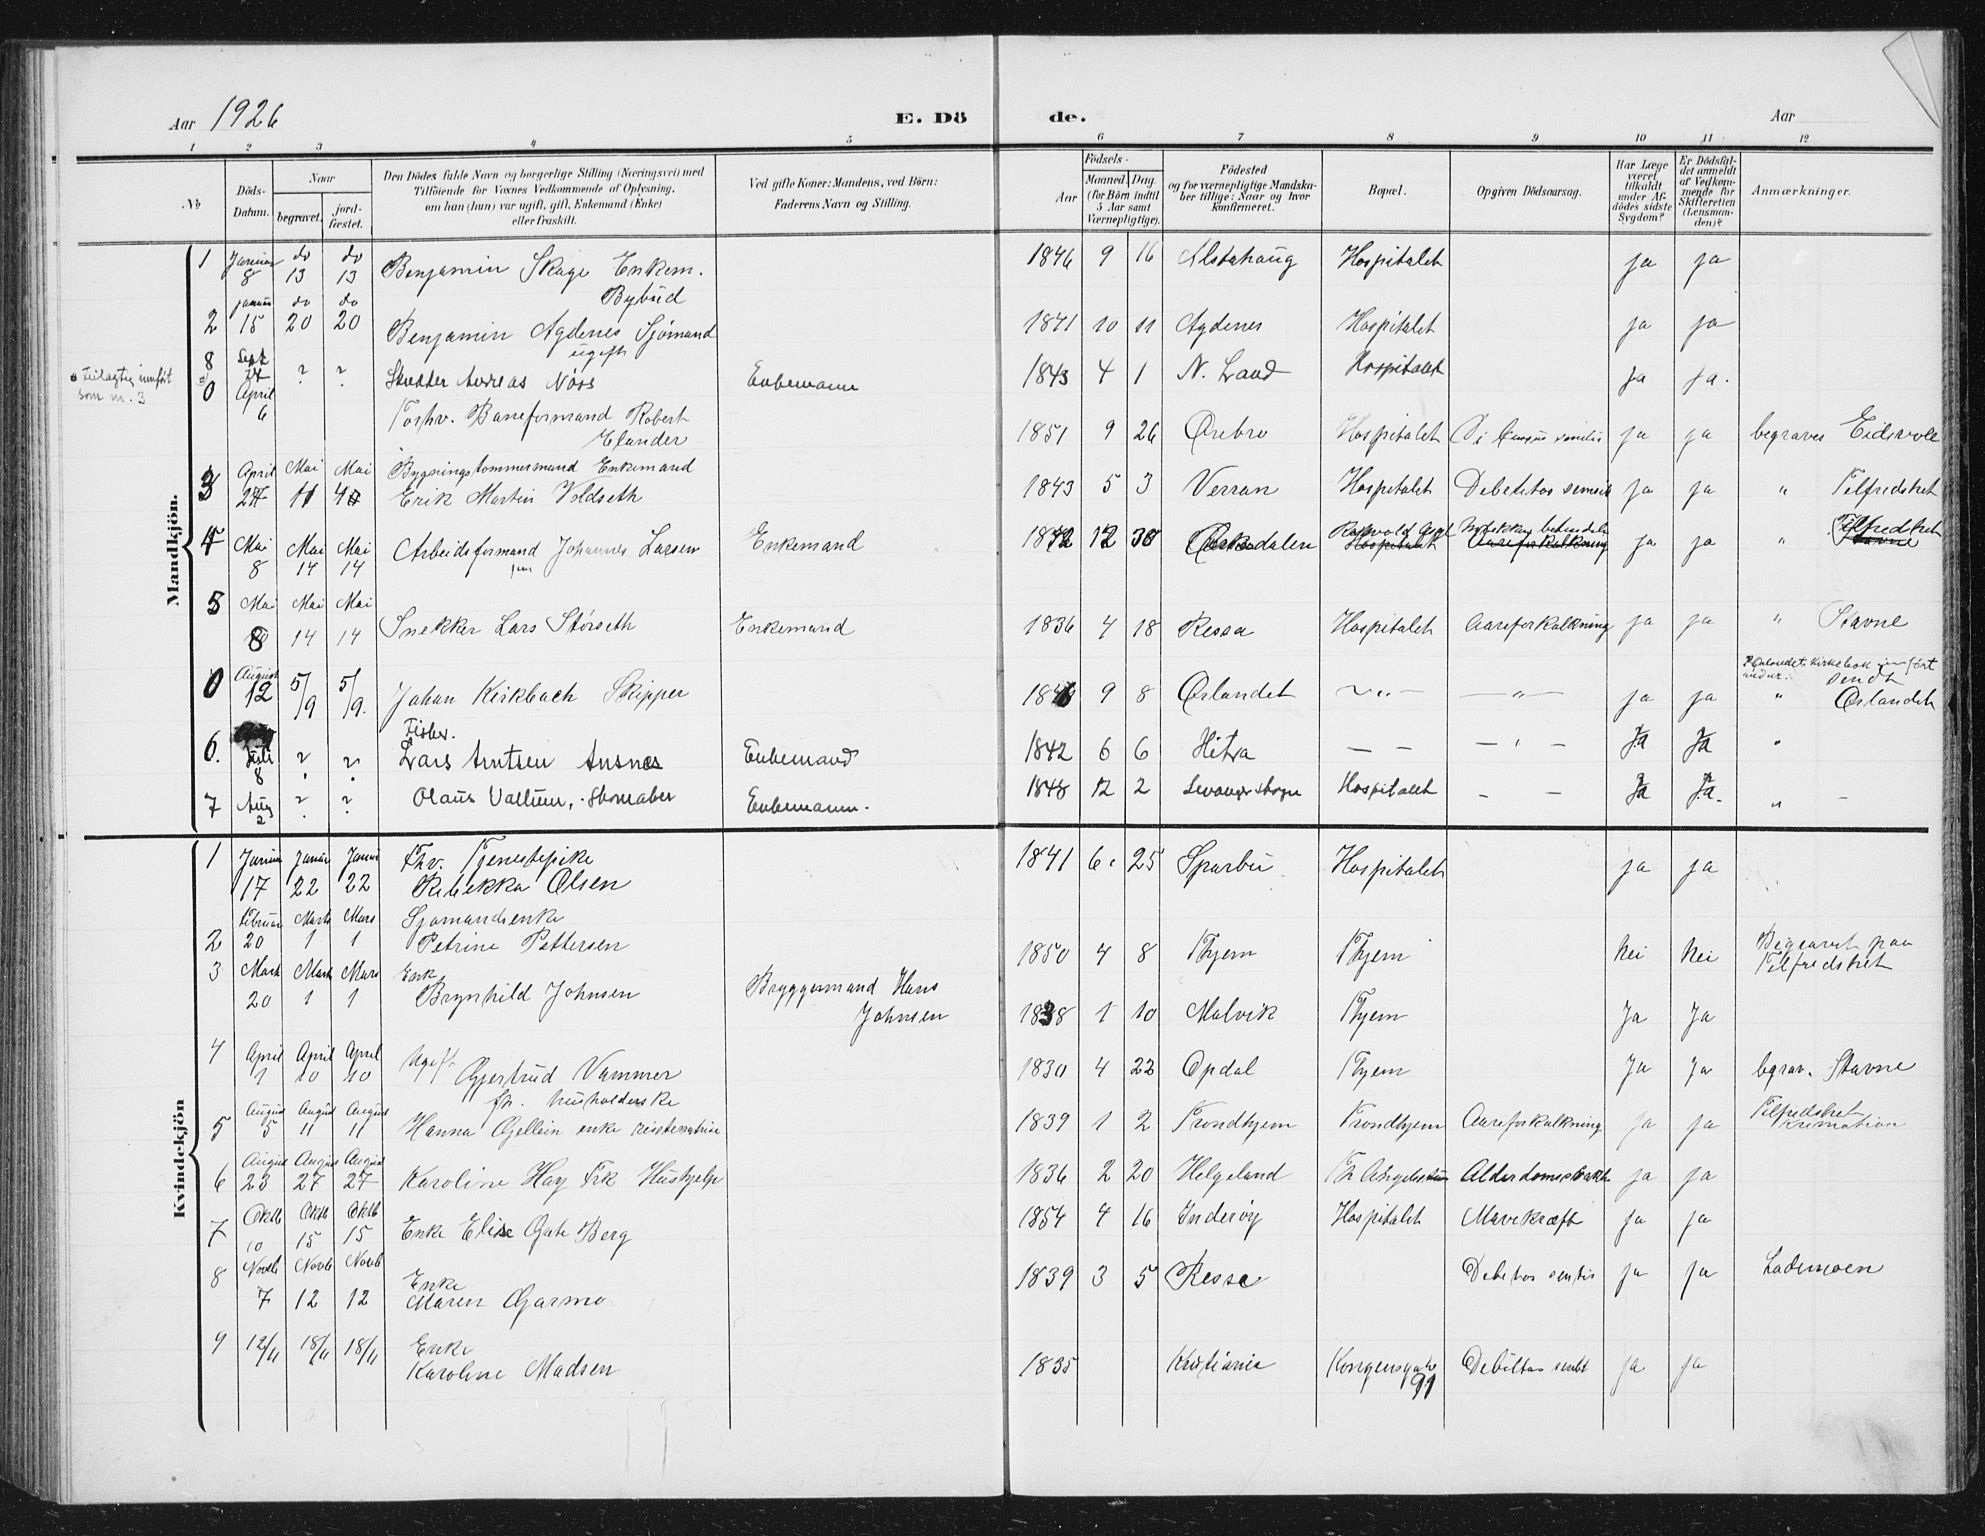 Aar 1926
E. Dö
de.
Aar
1 2 3 4 5 6 7 8 9 10 11 12
No
Döds-Datum.
Naar
begravet.
jord-fæstet.
Den Dödes fulde Navn og borgerlige Stilling (Næringsvei) med
Tilföiende for Voxnes Vedkommende af Oplysning,
om han (hun) var ugift, gift, Enkemand (Enke)
eller fraskilt.
Ved gifte Koner: Mandens, ved Börn:
Faderens Navn og Stilling.
Födsels-
Aar
Maaned. Dag.
(for Börn indtil
5 Aar samt
Værnepligtige).
Födested
og for værnepligtige Mandska-
ber tillige: Naar og hvor
konfirmeret.
Bopæl.
Opgiven Dödsaarsag.
Har Læge
været
tilkaldt
under Af-
dödes sidste
Sygdom?
Er Dödsfal-
det anmeldt
af Vedkom-
mende for
Skifteretten
(Lensman-
den)?
Anmærkninger.
Mandkjön.
1 Januar 8 do 13 do 13 Benjamin Skage Enkem. 1846 9 16 Alstahaug Hospitalet ja ja
Bybud
2 januar 15 do 20 do 20 Benjamin Agdenes Sjömand 1841 10 11 Agdenes Hospitalet ja ja
ugift
8 Sept 24 ? ? Skredder Andreas Nöss Enkemann 1843 4 1 N. Land Hospitalet ja ja.
* Feilagtig innfört
som nr. 3
0 April 6 Forhv. Baneformand Robert
Elander 1851 9 26 Örebro Hospitalet ja ja begraves Eidsvole
3 April 24 Mai Mai Bygningstommermand Enkemand
Erik Martin Voldseth 1843 5 3 Verran Hospitalet Debetitas senilis ja ja " Tilfredshet
4 Mai 8 Mai 14 Mai 14 Arbeidsformand Johannes Larsen Enkemand 12 30 Orkedalen Hospitalet Aareforkalkning ja ja " Tilfredshet
Stavne
5 Mai 8 Mai 14 Mai 14 Snekker Lars Störseth Enkemand 1836 4 18 Rissa Hospitalet Aareforkalkning ja ja " Stavne
0 August 12 5/9 5/9. Johan Kirkbach Skipper 9 8 Örlandet — " — — " — ja ja " Örlandet
6. Juli 8 ? ? Fisker.
Lars Arntsen Ansnes Enkemand 1842 6 6 Hitra — — — " — Ja Ja "
7 Aug 2 ? ? Olaus Vallum, Skomaker Enkemann. 1848 12 2 Levanger Hospitalet — — Ja Ja. "
Kvindekjön
1 Januar 17 januar 22 Januar 22 Fhv. Tjenestepike
Rebekka Olsen 1841 6 25 Sparbu Hospitalet ja ja
2 Februar 20 Marts 1 Mars 1 Sjomandsenke
Petrine Pettersen 1850 4 8 Thjem Thjem Nei Nei Begravet paa
Tilfredshet
3 Mart 20 Mart 1 Mars 1 Enk
Brynhild Johnsen Bryggermand Hans
Johnsen 1838 1 10 Malvik Thjem Ja Ja
4 April 1 April 10 April 10 Ugift Gjertrud Vammer 1830 4 22 Opdal Thjem Ja Ja begrav. Stavne
fh. husholderske
5 August 5 August 11 August 11 Hanna Gjellein enke 1839 1 2 Trondhjem Trondhjem Aareforkalkning ja ja Tilfredshet
Kremation
6 August 23 August 27 August 27 Karoline Hay Frk Hushjelp 1836 2 20 Helgeland ja ja
7 Oktb 10 Oktb 15 Oktb 15 Enke Elise Gate Berg 1854 4 16 Inderöy Hospitalet Mavekræft ja ja
8 Novb 7 Novb 12 Novb 12 Enke
Maren Garmo 1839 3 5 Rissa Debetas senilis ja ja Lademoen
9 12/11 18/11 18/11 Enke
Karoline Madsen 1835 Kristiania Kongensgate
91 Debilitas ja ja